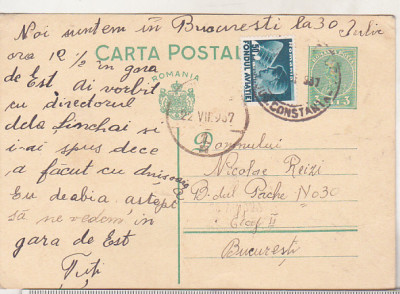 Noi suntem in Bucuresti la 30 Iulie
ora 12 ½ in gara
de Est. Ai vorbit
cu directorul
dela Linhai si
i-ai spus dece
a făcut cu dnisoara
Eu deabia astept
să ne vedem in
gara de Est
Tuți
CARTA POSTALA
ROMANIA
22 VII 937
ROMANIA
FONDUL AVIATIEI
CONSTANTA
Domnului
Nicolae Reizi
B-dul Pache No 30
Etaj II
Bucuresti